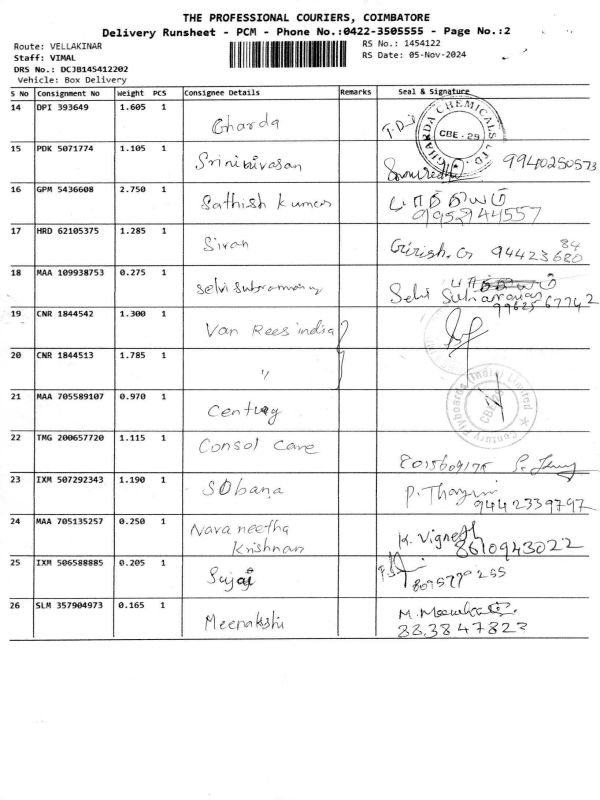 THE PROFESSIONAL COURIERS, COIMBATORE
Delivery Runsheet - PCM - Phone No.:0422-3505555 - Page No.:2
Route: VELLAKINAR
Staff: VIMAL
DRS No.: DCJB145412202
Vehicle: Box Delivery
RS No.: 1454122
RS Date: 05-Nov-2024
S No Consignment No Weight PCS Consignee Details Remarks Seal & Signature
14 DPI 393649 1.605 1 Gharda
GHARDA CHEMICALS LTD. CBE - 29
15 PDK 5071774 1.105 1 Srinivasan 9940250573
16 GPM 5436608 2.750 1 Sathish kumar 9952944557
17 HRD 62105375 1.285 1 Sivan Girish. G 94423 680
84
18 MAA 109938753 0.275 1 Selvi Subramaniy Selvi
9962567742
19 CNR 1844542 1.300 1 Van Rees india
20 CNR 1844513 1.785 1 "
21 MAA 705589107 0.970 1 Century
Century Flyboards (India) Limited
22 TMG 200657720 1.115 1 Consol Care
23 IXM 507292343 1.190 1 Sobana P. 9442339797
24 MAA 705135257 0.250 1 Navaneetha
Krishnan
K. Vignesh
8610943022
25 IXM 506588885 0.205 1 Sujai
26 SLM 357904973 0.165 1 Meenakshi
883847823